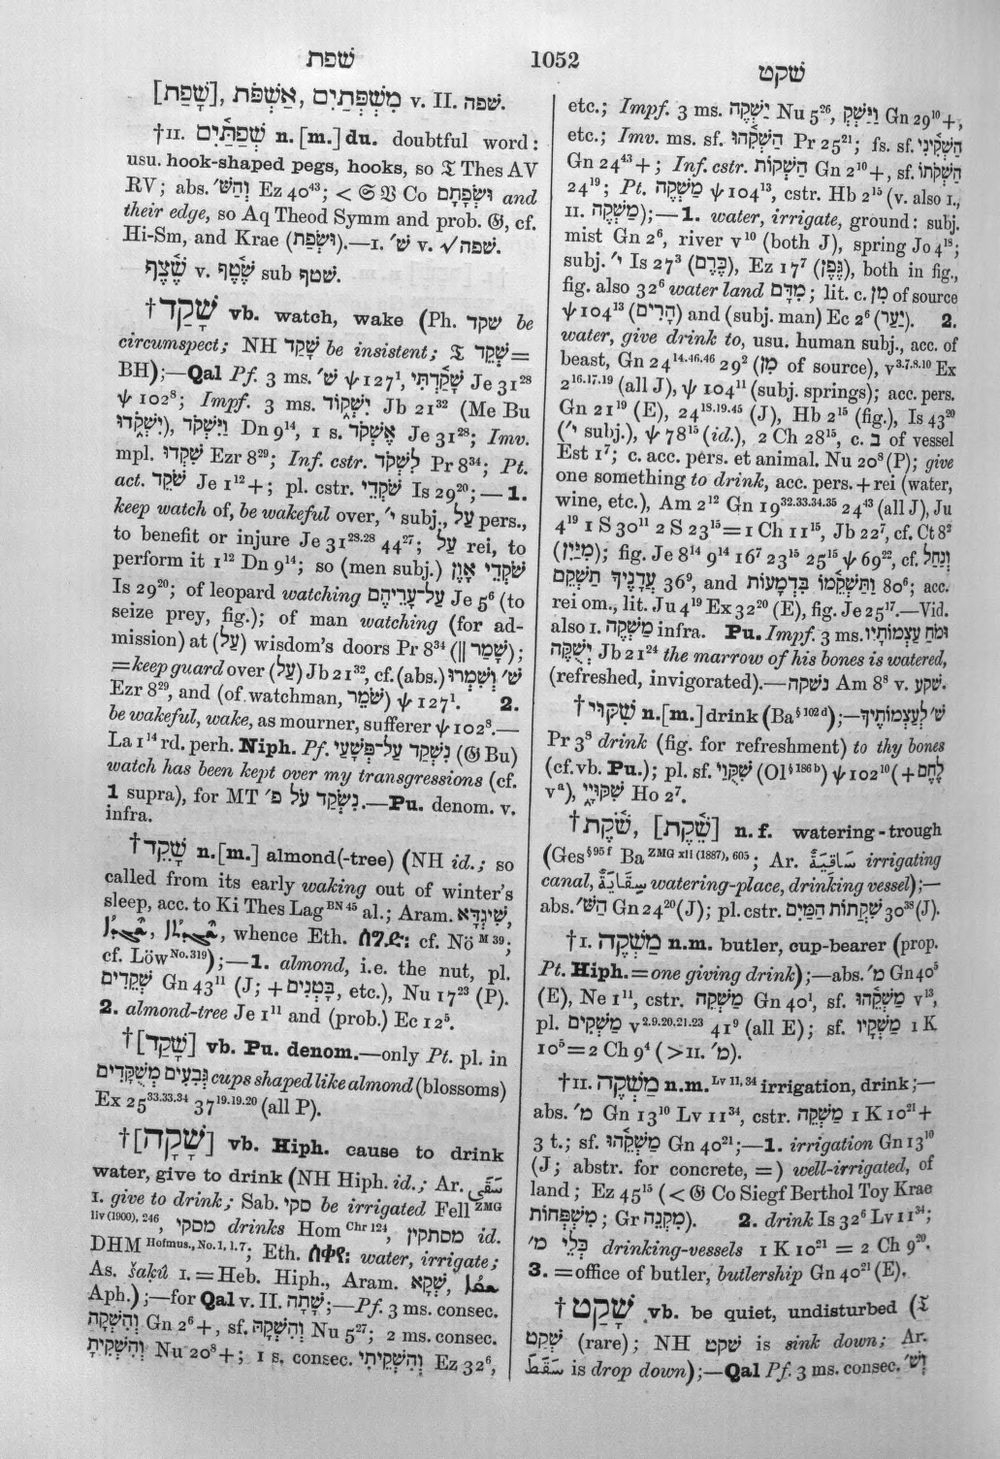 שׁפת
1052
שׁקט
[שָׁפַת], אַשְׁפֹּת, מִשְׁפְּתַיִם v. II. שׁפה.
†II. שְׁפַתַּ֫יִם n.[m.] du. doubtful word:
usu. hook-shaped pegs, hooks, so 𝔗 Thes AV
RV; abs. וְהַשׁ׳ Ez 40⁴³; < 𝔊 𝔙 Co וּשְׂפָתָם and
their edge, so Aq Theod Symm and prob. 𝔊, cf.
Hi-Sm, and Krae (וּשְׂפַת).—I. שׁ׳ v. √שׁפה.
שֶׁ֫צֶף v. שֶׁ֫טֶף sub שׁטף.
†שָׁקַד vb. watch, wake (Ph. שקד be
circumspect; NH שָׁקַד be insistent; 𝔗 שְׁקֵד =
BH);—Qal Pf. 3 ms. שׁ׳ ψ 127¹, שָׁקַ֫דְתִּי Je 31²⁸
ψ 102⁸; Impf. 3 ms. יִשְׁקוֹד Jb 21³² (Me Bu
יִשְׁקֹ֑דוּ), וַיִּשְׁקֹד Dn 9¹⁴, 1 s. אֶשְׁקֹד Je 31²⁸; Imv.
mpl. שִׁקְדוּ Ezr 8²⁹; Inf. cstr. לִשְׁקֹד Pr 8³⁴; Pt.
act. שֹׁקֵד Je 1¹²+; pl. cstr. שֹׁקְדֵי Is 29²⁰;—1.
keep watch of, be wakeful over, י׳ subj., עַל pers.,
to benefit or injure Je 31²⁸·²⁸ 44²⁷; עַל rei, to
perform it 1¹² Dn 9¹⁴; so (men subj.) שֹׁקְדֵי אָוֶן
Is 29²⁰; of leopard watching עַל־עָרֵיהֶם Je 5⁶ (to
seize prey, fig.); of man watching (for ad-
mission) at (עַל) wisdom's doors Pr 8³⁴ (‖ שָׁמַר);
=keep guard over (עַל) Jb 21³², cf. (abs.) שׁ׳ וְשִׁמְרוּ
Ezr 8²⁹, and (of watchman, שֹׁמֵר) ψ 127¹. 2.
be wakeful, wake, as mourner, sufferer ψ 102⁸.—
La 1¹⁴ rd. perh. Niph. Pf. נִשְׁקַד עַל־פְּשָׁעַי (𝔊 Bu)
watch has been kept over my transgressions (cf.
1 supra), for MT נִשְׂקַד עֹל פ׳.—Pu. denom. v.
infra.
†שָׁקֵד n.[m.] almond(-tree) (NH id.; so
called from its early waking out of winter's
sleep, acc. to Ki Thes Lag BN 45 al.; Aram. שִׁיגְדָּא,
whence Eth. ሰግድ: cf. Nö M 39;
cf. Löw No. 319);—1. almond, i.e. the nut, pl.
שְׁקֵדִים Gn 43¹¹ (J; + בָּטְנִים, etc.), Nu 17²³ (P).
2. almond-tree Je 1¹¹ and (prob.) Ec 12⁵.
†[שָׁקַד] vb. Pu. denom.—only Pt. pl. in
גְּבִעִים מְשֻׁקָּדִים cups shaped like almond (blossoms)
Ex 25³³·³³·³⁴ 37¹⁹·¹⁹·²⁰ (all P).
†[שָׁקָה] vb. Hiph. cause to drink
water, give to drink (NH Hiph. id.; Ar. سَقَى
I. give to drink; Sab. סקי be irrigated Fell ZMG
liv (1900), 246, מסקי drinks Hom Chr 124, מסתקין id.
DHM Hofmus., No. 1, l. 7; Eth. ሰቀየ: water, irrigate;
As. šaḳû I. = Heb. Hiph., Aram. שְׁקָא,
Aph.);—for Qal v. II. שָׁתָה;—Pf. 3 ms. consec.
וְהִשְׁקָה Gn 2⁶+, sf. וְהִשְׁקָהּ Nu 5²⁷; 2 ms. consec.
וְהִשְׁקִיתָ Nu 20⁸+; 1 s. consec. וְהִשְׁקֵיתִי Ez 32⁶,
etc.; Impf. 3 ms. יַשְׁקֶה Nu 5²⁶, וַיַּשְׁקְ Gn 29¹⁰+,
etc.; Imv. ms. sf. הַשְׁקֵ֫הוּ Pr 25²¹; fs. sf. הַשְׁקִ֫ינִי
Gn 24⁴³+; Inf. cstr. הַשְׁקוֹת Gn 2¹⁰+, sf. הַשְׁקֹתוֹ
24¹⁹; Pt. מַשְׁקֶה ψ 104¹³, cstr. Hb 2¹⁵ (v. also I.,
II. מַשְׁקֶה);—1. water, irrigate, ground: subj.
mist Gn 2⁶, river v¹⁰ (both J), spring Jo 4¹⁸;
subj. י׳ Is 27³ (כֶּרֶם), Ez 17⁷ (גֶּפֶן), both in fig.,
fig. also 32⁶ water land מִדָּם; lit. c. מִן of source
ψ 104¹³ (הָרִים) and (subj. man) Ec 2⁶ (יַעַר). 2.
water, give drink to, usu. human subj., acc. of
beast, Gn 24¹⁴·⁴⁶·⁴⁶ 29² (מִן of source), v³·⁷·⁸·¹⁰ Ex
2¹⁶·¹⁷·¹⁹ (all J), ψ 104¹¹ (subj. springs); acc. pers.
Gn 21¹⁹ (E), 24¹⁸·¹⁹·⁴⁵ (J), Hb 2¹⁵ (fig.), Is 43²⁰
(י׳ subj.), ψ 78¹⁵ (id.), 2 Ch 28¹⁵, c. בּ of vessel
Est 1⁷; c. acc. pers. et animal. Nu 20⁸ (P); give
one something to drink, acc. pers. + rei (water,
wine, etc.), Am 2¹² Gn 19³²·³³·³⁴·³⁵ 24⁴³ (all J), Ju
4¹⁹ 1 S 30¹¹ 2 S 23¹⁵ = 1 Ch 11¹⁵, Jb 22⁷, cf. Ct 8²
(מִיַּיִן); fig. Je 8¹⁴ 9¹⁴ 16⁷ 23¹⁵ 25¹⁵ ψ 69²², cf. וְנַחַל
עֲדָנֶיךָ תַשְׁקֵם 36⁹, and וַתַּשְׁקֵ֫מוֹ בִּדְמָעוֹת 80⁶; acc.
rei om., lit. Ju 4¹⁹ Ex 32²⁰ (E), fig. Je 25¹⁷.—Vid.
also I. מַשְׁקֶה infra. Pu. Impf. 3 ms. וּמֹחַ עַצְמוֹתָיו
יְשֻׁקֶּה Jb 21²⁴ the marrow of his bones is watered,
(refreshed, invigorated).—נשׁקה Am 8⁸ v. שׁקע.
†שִׁקּוּי n.[m.] drink (Ba § 102 d);—שׁ׳ לְעַצְמוֹתֶיךָ
Pr 3⁸ drink (fig. for refreshment) to thy bones
(cf. vb. Pu.); pl. sf. שִׁקֻּוַי (Ol § 186 b) ψ 102¹⁰ (+ לֶחֶם
vᵃ), שִׁקּוּיָי Ho 2⁷.
†שֹׁ֫קֶת, [שֶׁ֫קֶת] n. f. watering-trough
(Ges § 95 f Ba ZMG xli (1887), 605; Ar. سَاقِيَةٌ irrigating
canal, سِقَايَةٌ watering-place, drinking vessel);—
abs. הַשּׁ׳ Gn 24²⁰ (J); pl. cstr. שִׁקֲתוֹת הַמַּיִם 30³⁸ (J).
†I. מַשְׁקֶה n.m. butler, cup-bearer (prop.
Pt. Hiph. = one giving drink);—abs. מ׳ Gn 40⁵
(E), Ne 1¹¹, cstr. מַשְׁקֵה Gn 40¹, sf. מַשְׁקֵ֫הוּ v¹³,
pl. מַשְׁקִים v²·⁹·²⁰·²¹·²³ 41⁹ (all E); sf. מַשְׁקָיו 1 K
10⁵ = 2 Ch 9⁴ (> II. מ׳).
†II. מַשְׁקֶה n.m. Lv 11, 34 irrigation, drink;—
abs. מ׳ Gn 13¹⁰ Lv 11³⁴, cstr. מַשְׁקֵה 1 K 10²¹+
3 t.; sf. מַשְׁקֵ֫הוּ Gn 40²¹;—1. irrigation Gn 13¹⁰
(J; abstr. for concrete, =) well-irrigated, of
land; Ez 45¹⁵ (< 𝔊 Co Siegf Berthol Toy Krae
מִשְׁפְּחוֹת; Gr מִקְנֵה). 2. drink Is 32⁶ Lv 11³⁴;
כְּלֵי מ׳ drinking-vessels 1 K 10²¹ = 2 Ch 9²⁰.
3. = office of butler, butlership Gn 40²¹ (E).
†שָׁקַט vb. be quiet, undisturbed (𝔗
שְׁקֵט (rare); NH שקט is sink down; Ar.
سَقَطَ is drop down);—Qal Pf. 3 ms. consec. וְשׁ׳